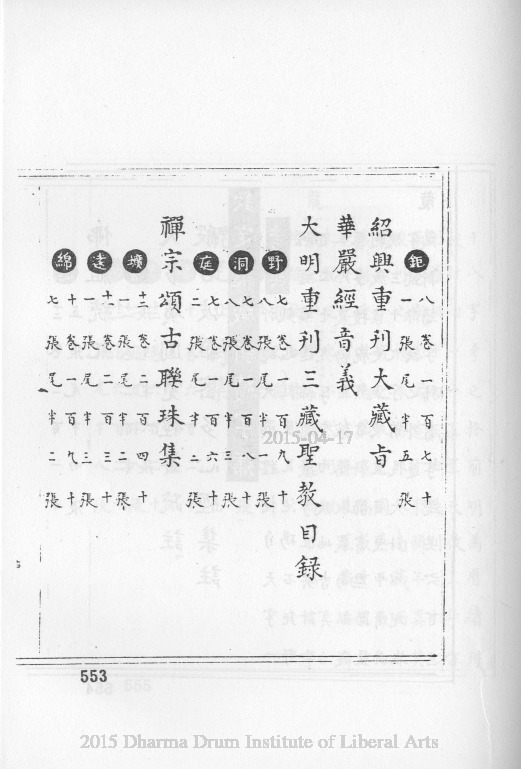 鉅
八卷一百七十
一張尾半五張
紹興重刊大藏音
華嚴經音義
大明重刊三藏聖教目録
野
七卷一百九十
八張尾半一張
洞
七卷一百八十
八張尾半三張
庭
七卷一百六十
二張尾半二張
禪宗頌古聯珠集
曠
十三卷二百四十
一張尾半二張
遠
十二卷二百三十
一張尾半三張
綿
十卷一百九十
七張尾半二張
2015-04-17
553
2015 Dharma Drum Institute of Liberal Arts